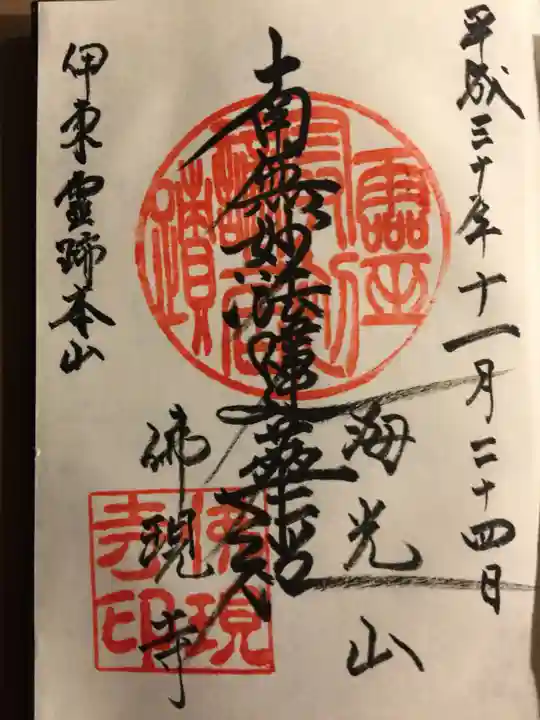 平成三十年十一月二十四日
海光山
南無妙法蓮華経
佛現寺
伊東霊跡本山
佛現寺印